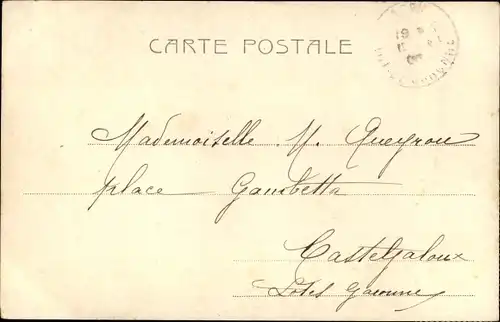 CARTE POSTALE
19
Mademoiselle M. Queyrou
place Gambetta
Casteljaloux
Lot & Garonne